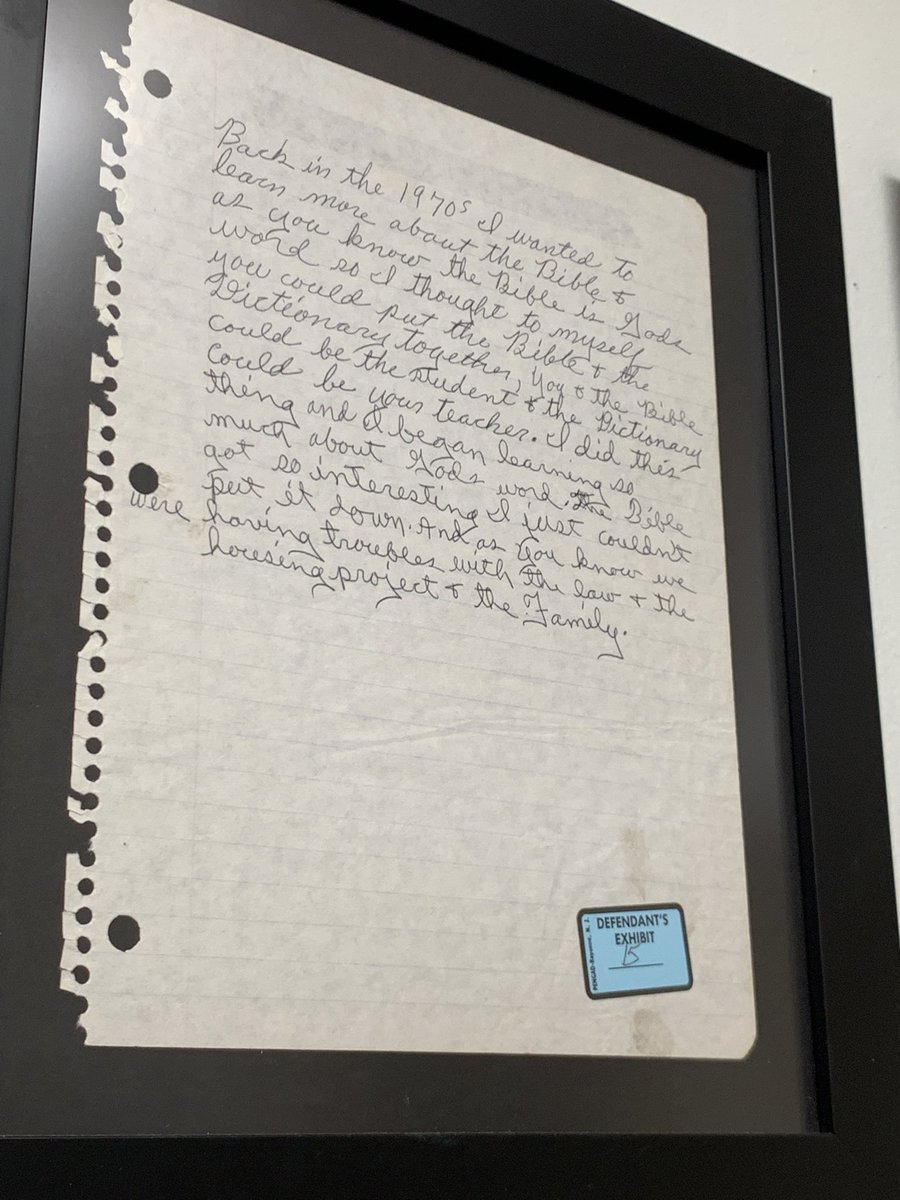 Back in the 1970s I wanted to
learn more about the Bible &
as you know the Bible is Gods
word so I thought to myself
you could put the Bible & the
Dictionary together, You & the Bible
could be the student & the Dictionary
could be your teacher. I did this
thing and I began learning so
much about Gods word. the Bible
got so interesting I just couldn't
put it down. And as you know we
were having troubles with the law & the
housing project & the Family.
DEFENDANT'S
EXHIBIT
15
PENGAD-Bayonne, N. J.